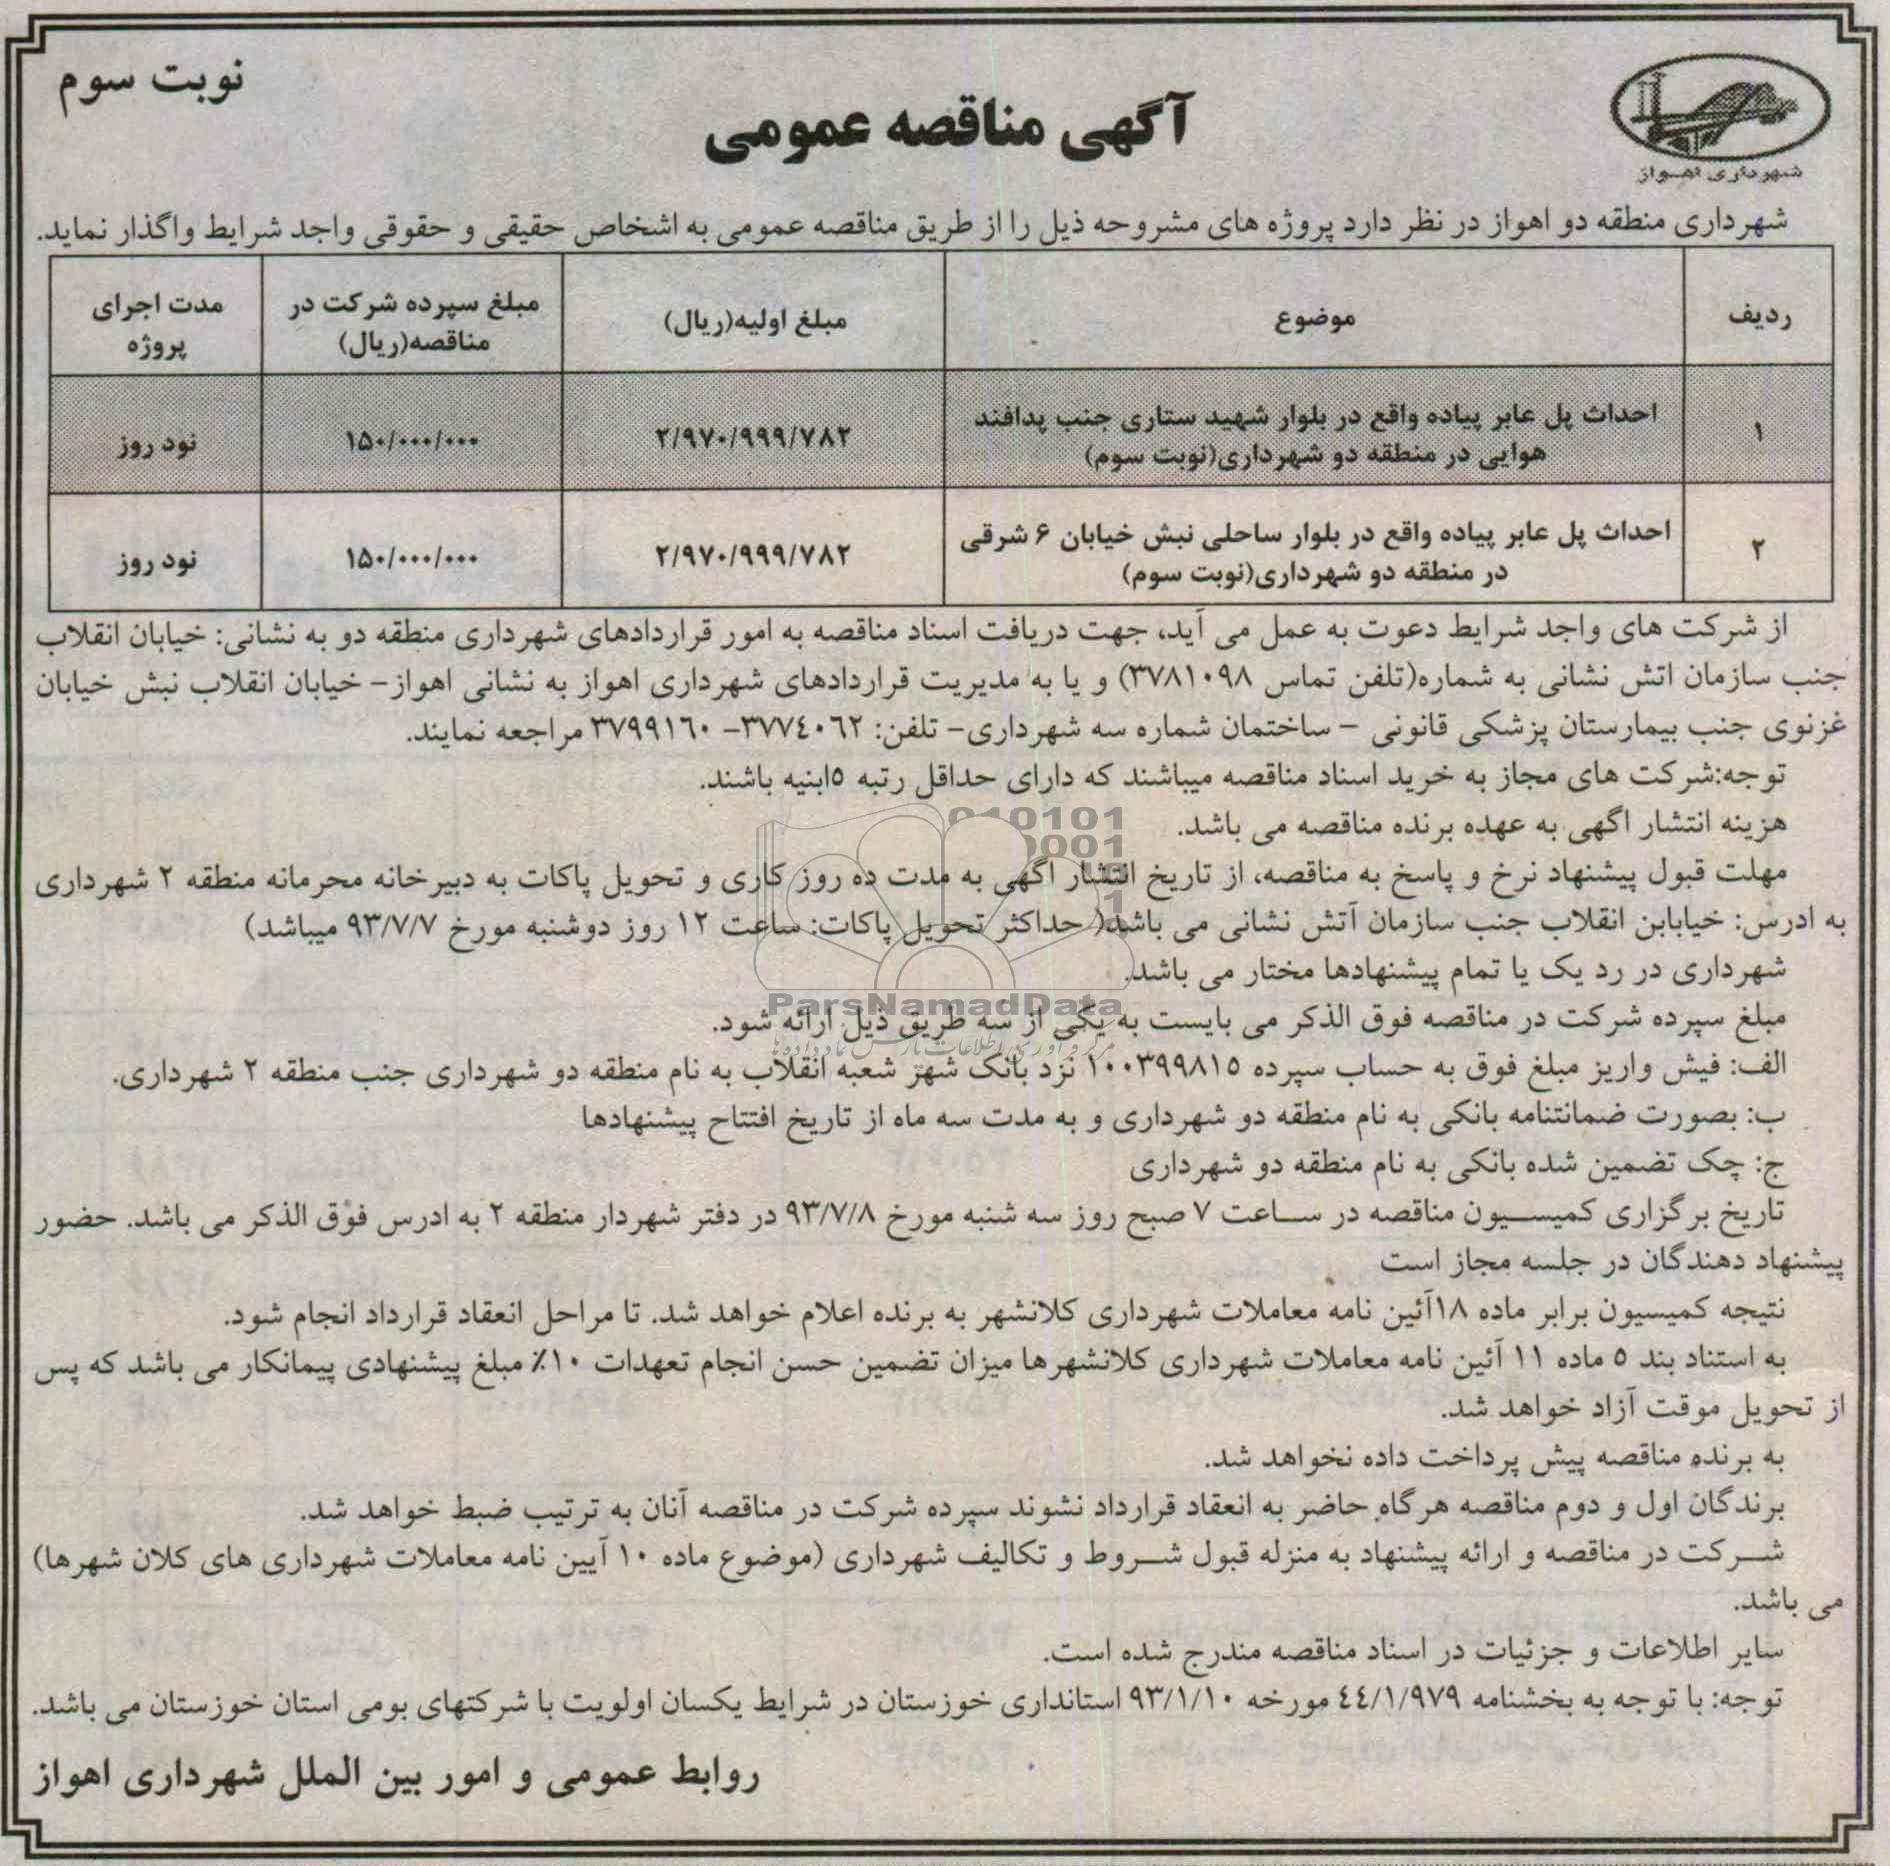 نوبت سوم
آگهی مناقصه عمومی
شهرداری اهواز
شهرداری منطقه دو اهواز در نظر دارد پروژه های مشروحه ذیل را از طریق مناقصه عمومی به اشخاص حقیقی و حقوقی واجد شرایط واگذار نماید.
ردیف موضوع مبلغ اولیه(ریال) مبلغ سپرده شرکت در مناقصه(ریال) مدت اجرای پروژه
۱ احداث پل عابر پیاده واقع در بلوار شهید ستاری جنب پدافند هوایی در منطقه دو شهرداری(نوبت سوم) ۲/۹۷۰/۹۹۹/۷۸۲ ۱۵۰/۰۰۰/۰۰۰ نود روز
۲ احداث پل عابر پیاده واقع در بلوار ساحلی نبش خیابان ۶ شرقی در منطقه دو شهرداری(نوبت سوم) ۲/۹۷۰/۹۹۹/۷۸۲ ۱۵۰/۰۰۰/۰۰۰ نود روز
از شرکت های واجد شرایط دعوت به عمل می آید، جهت دریافت اسناد مناقصه به امور قراردادهای شهرداری منطقه دو به نشانی: خیابان انقلاب
جنب سازمان اتش نشانی به شماره(تلفن تماس ۳۷۸۱۰۹۸) و یا به مدیریت قراردادهای شهرداری اهواز به نشانی اهواز– خیابان انقلاب نبش خیابان
غزنوی جنب بیمارستان پزشکی قانونی – ساختمان شماره سه شهرداری– تلفن: ۳۷۷٤۰٦۲– ۳۷۹۹۱٦۰ مراجعه نمایند.
توجه:شرکت های مجاز به خرید اسناد مناقصه میباشند که دارای حداقل رتبه ۵ابنیه باشند.
هزینه انتشار اگهی به عهده برنده مناقصه می باشد.
مهلت قبول پیشنهاد نرخ و پاسخ به مناقصه، از تاریخ انتشار اگهی به مدت ده روز کاری و تحویل پاکات به دبیرخانه محرمانه منطقه ۲ شهرداری
به ادرس: خیاباین انقلاب جنب سازمان آتش نشانی می باشد( حداکثر تحویل پاکات: ساعت ۱۲ روز دوشنبه مورخ ۹۳/۷/۷ میباشد)
شهرداری در رد یک یا تمام پیشنهادها مختار می باشد.
مبلغ سپرده شرکت در مناقصه فوق الذکر می بایست به یکی از سه طریق ذیل ارائه شود.
الف: فیش واریز مبلغ فوق به حساب سپرده ۱۰۰۳۹۹۸۱۵ نزد بانک شهر شعبه انقلاب به نام منطقه دو شهرداری جنب منطقه ۲ شهرداری.
ب: بصورت ضمانتنامه بانکی به نام منطقه دو شهرداری و به مدت سه ماه از تاریخ افتتاح پیشنهادها
ج: چک تضمین شده بانکی به نام منطقه دو شهرداری
تاریخ برگزاری کمیسیون مناقصه در ساعت ۷ صبح روز سه شنبه مورخ ۹۳/۷/۸ در دفتر شهردار منطقه ۲ به ادرس فوق الذکر می باشد. حضور
پیشنهاد دهندگان در جلسه مجاز است
نتیجه کمیسیون برابر ماده ۱۸آئین نامه معاملات شهرداری کلانشهر به برنده اعلام خواهد شد. تا مراحل انعقاد قرارداد انجام شود.
به استناد بند ۵ ماده ۱۱ آئین نامه معاملات شهرداری کلانشهرها میزان تضمین حسن انجام تعهدات ۱۰٪ مبلغ پیشنهادی پیمانکار می باشد که پس
از تحویل موقت آزاد خواهد شد.
به برنده مناقصه پیش پرداخت داده نخواهد شد.
برندگان اول و دوم مناقصه هرگاه حاضر به انعقاد قرارداد نشوند سپرده شرکت در مناقصه آنان به ترتیب ضبط خواهد شد.
شرکت در مناقصه و ارائه پیشنهاد به منزله قبول شروط و تکالیف شهرداری (موضوع ماده ۱۰ آیین نامه معاملات شهرداری های کلان شهرها)
می باشد.
سایر اطلاعات و جزئیات در اسناد مناقصه مندرج شده است.
توجه: با توجه به بخشنامه ٤٤/۱/۹۷۹ مورخه ۹۳/۱/۱۰ استانداری خوزستان در شرایط یکسان اولویت با شرکتهای بومی استان خوزستان می باشد.
روابط عمومی و امور بین الملل شهرداری اهواز
ParsNamadData